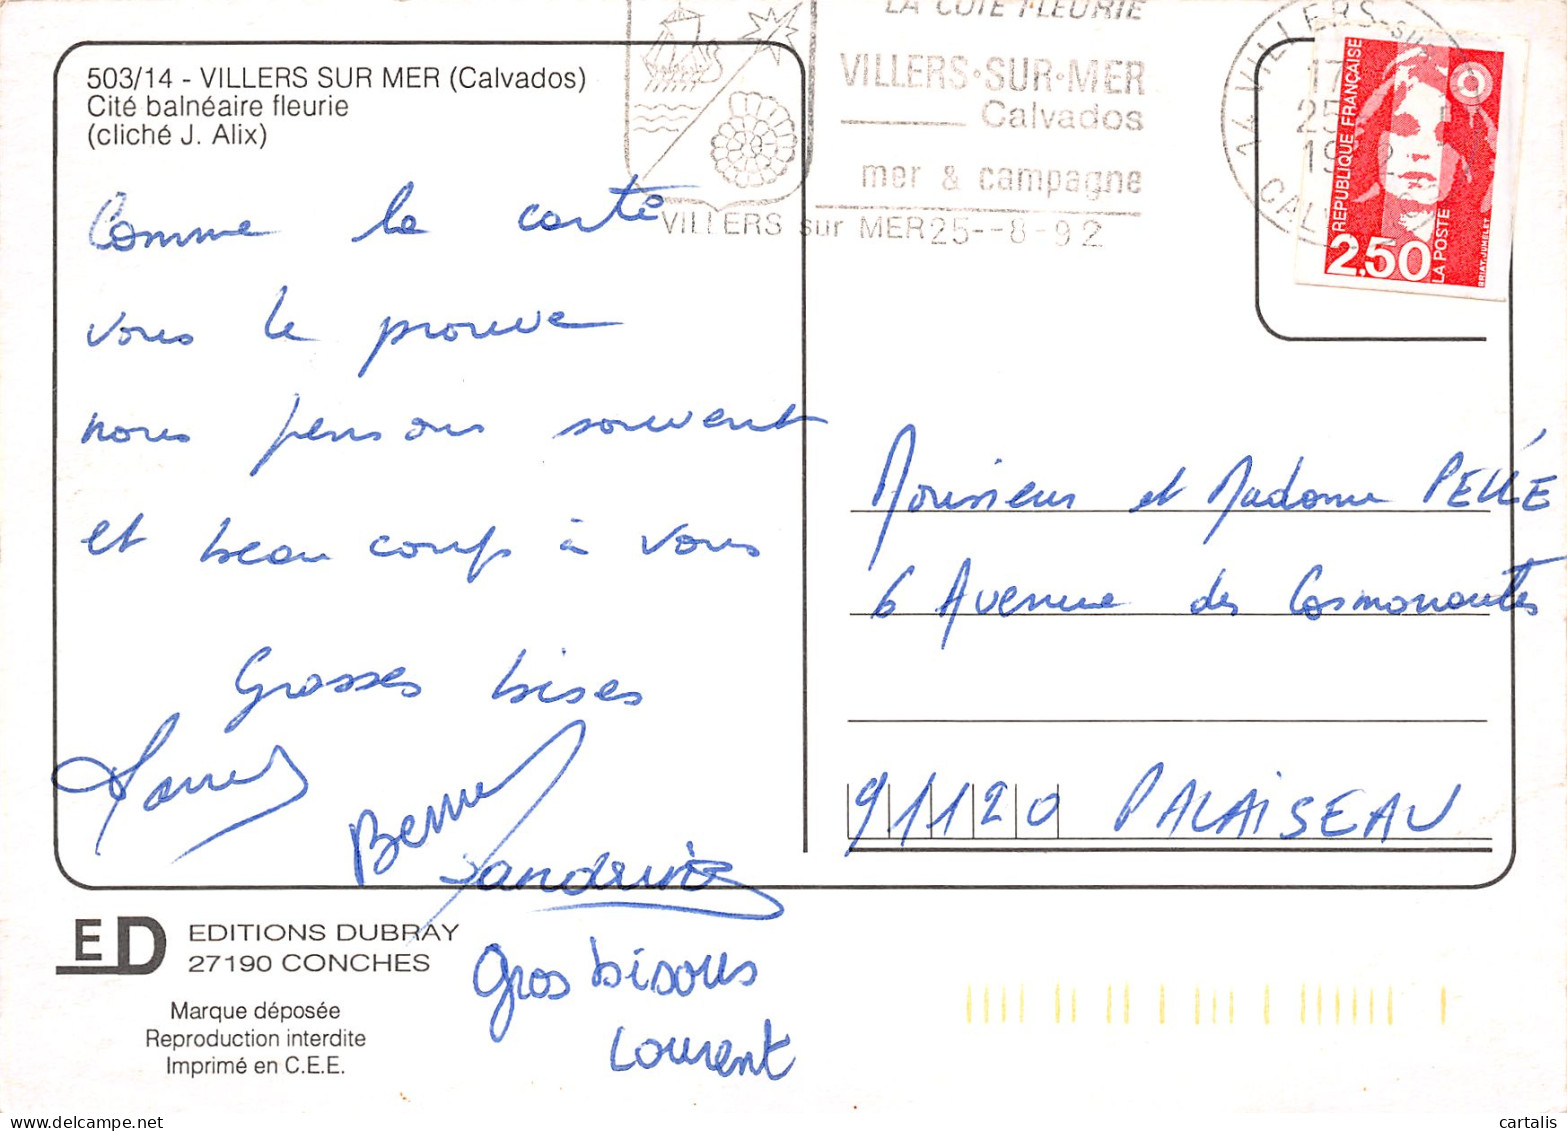 503/14 - VILLERS SUR MER (Calvados)
Cité balnéaire fleurie
(cliché J. Alix)
LA COTE FLEURIE
VILLERS·SUR·MER
Calvados
mer & campagne
VILLERS sur MER 25--8-92
14 VILLERS-SUR
17
25
19 2
CAL
REPUBLIQUE FRANÇAISE
2,50
LA POSTE
BRIAT.JUMELET
Comme la carte
vous le prouve
nous pensons souvent
et beaucoup à vous
Grosses bises
Sandrine
Gros bisous
Laurent
Monsieur et Madame PELLÉ
6 Avenue des Cosmonautes
91120 PALAISEAU
ED
EDITIONS DUBRAY
27190 CONCHES
Marque déposée
Reproduction interdite
Imprimé en C.E.E.
www.cartalis.com